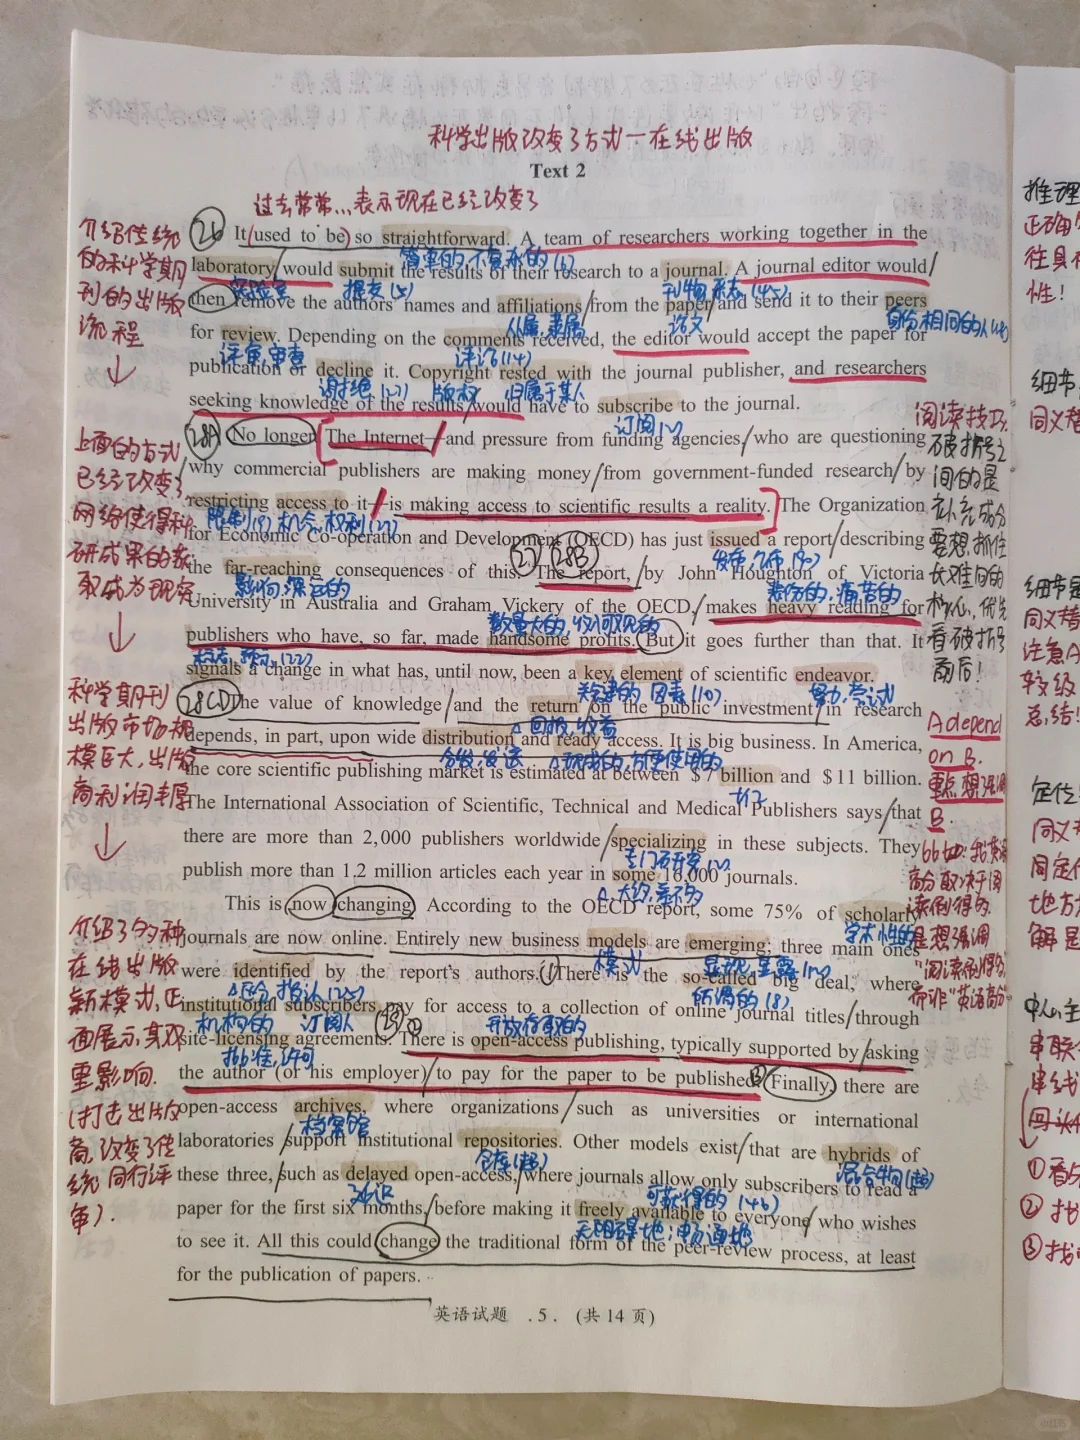 科学出版改变了方式一在线出版
Text 2
过去常常...表示现在已经改变了
26 It used to be so straightforward. A team of researchers working together in the
简单的 不复杂的
laboratory would submit the results of their research to a journal. A journal editor would
实验室 提交(5) 刊物 杂志(45)
then remove the authors' names and affiliations from the paper and send it to their peers
从属 隶属 论文 身份相同的人
for review. Depending on the comments received, the editor would accept the paper for
评审 审查 评论(14)
publication or decline it. Copyright rested with the journal publisher, and researchers
谢绝 版权 归属于某人
seeking knowledge of the results would have to subscribe to the journal.
订阅
28A No longer. The Internet—and pressure from funding agencies, who are questioning
why commercial publishers are making money from government-funded research by
restricting access to it—is making access to scientific results a reality. The Organization
限制 机会 权利
for Economic Co-operation and Development (OECD) has just issued a report describing
27 28B 发布
the far-reaching consequences of this. The report, by John Houghton of Victoria
影响深远的
University in Australia and Graham Vickery of the OECD, makes heavy reading for
数量大的
publishers who have, so far, made handsome profits. But it goes further than that. It
signals a change in what has, until now, been a key element of scientific endeavor.
关键的 因素(10) 努力 尝试
28CD The value of knowledge and the return on the public investment in research
回报 收益
depends, in part, upon wide distribution and ready access. It is big business. In America,
分发 发送 现成的 方便使用的
the core scientific publishing market is estimated at between $ 7 billion and $ 11 billion.
十亿
The International Association of Scientific, Technical and Medical Publishers says that
there are more than 2,000 publishers worldwide specializing in these subjects. They
专门研究
publish more than 1.2 million articles each year in some 16,000 journals.
大约 差不多
This is now changing. According to the OECD report, some 75% of scholarly
学术性的
journals are now online. Entirely new business models are emerging; three main ones
模式
were identified by the report's authors. ① There is the so-called big deal, where
所谓的(8)
institutional subscribers pay for access to a collection of online journal titles through
机构的 订阅人 开放存取的
site-licensing agreements. There is open-access publishing, typically supported by asking
批准 许可
the author (or his employer) to pay for the paper to be published. Finally, there are
open-access archives, where organizations such as universities or international
档案馆
laboratories support institutional repositories. Other models exist that are hybrids of
these three, such as delayed open-access, where journals allow only subscribers to read a
paper for the first six months, before making it freely available to everyone who wishes
无阻碍地;畅通地
to see it. All this could change the traditional form of the peer-review process, at least
for the publication of papers.
英语试题 . 5 . (共 14 页)
介绍传统
的科学期
刊的出版
流程
上面的方式
已经改变了
网络使得科
研成果的获
取成为现实
科学期刊
出版市场规
模巨大,出版
商利润丰厚
介绍了多种
在线出版
新模式,正
面展示其双
重影响.
(打击出版
商,改变了传
统同行评
审).
阅读技巧:
破折号之
间的是
补充成分
要想抓住
长难句的
核心,优先
看破折号
前后!
A depend
on B.
重点想强调
B.
比如:我英语
高分取决于阅
读做得好
是想强调
"阅读做得好"
而非"英语高分"
推理
正确
往具有
性!
细节
同义替
细节是
同义替
注意A
较级
总结!
定位
同义
同定位
地方
解是
中心主
串联
串线
①看
②找
③找